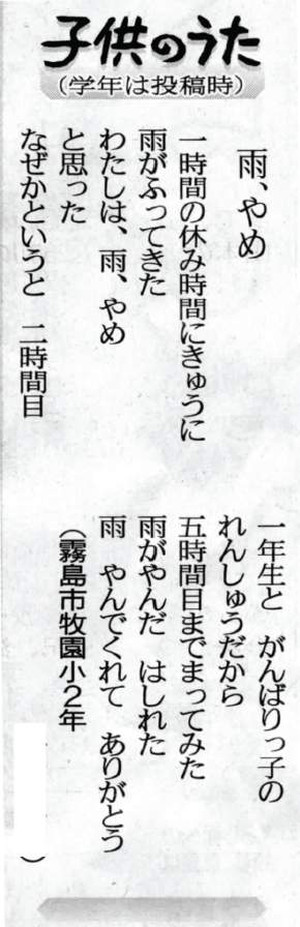 子供のうた
（学年は投稿時）
雨、やめ
一時間の休み時間にきゅうに
雨がふってきた
わたしは、雨、やめ
と思った
なぜかというと　二時間目
一年生と　がんばりっ子の
れんしゅうだから
五時間目までまってみた
雨がやんだ　はしれた
雨　やんでくれて　ありがとう
（霧島市牧園小２年　　　　）